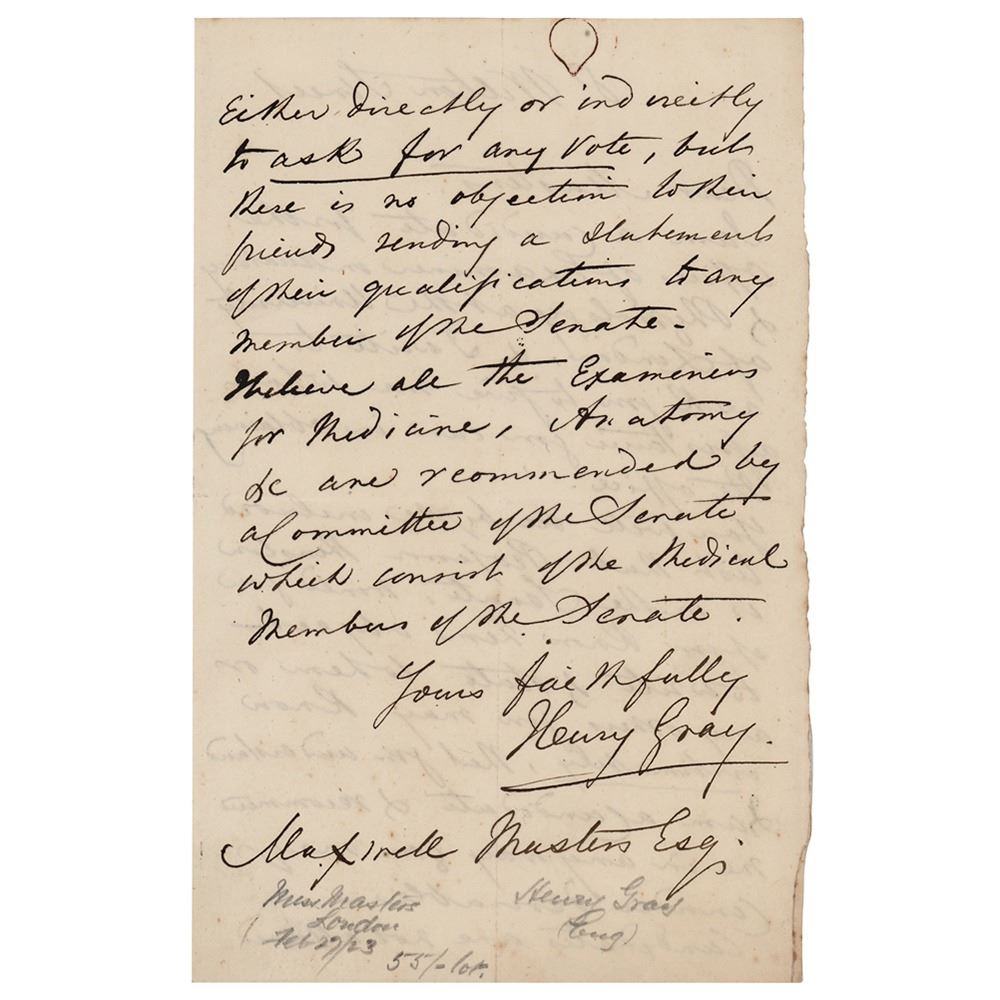 Either directly or indirectly
to ask for any vote, but
there is no objection to their
friends sending a statements
of their qualifications to any
member of the Senate -
I believe all the Examiners
for Medicine, Anatomy
&c are recommended by
a Committee of the Senate
which consist of the Medical
Members of the Senate.
Yours faithfully
Henry Gray.
Maxwell Masters Esq.
Miss Masters
London
Feb 27/23
55/- lot.
Henry Gray
(Eng)